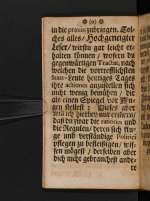 in die praxin zubringen. Sol-
ches alles / Hochgeneigter
Leser / wirstu gar leicht er-
halten können / wofern du
gegenwärtigen Tractat, nach
welchen die vortrefflichsten
Leute heutiges Tages
ihre actionen anzustellen sich
nicht wenig bemühen / die
als einen Spiegel vor Au-
gen stellest: Dieses aber
wil ich hierbey nur erinnern /
daß du zwar die rationes und
die Regulen / deren sich klu-
ge und verständige Politici
pflegen zu befleissigen / wis-
sen mögest / derselben aber
dich nicht gebrauchest ande-
re